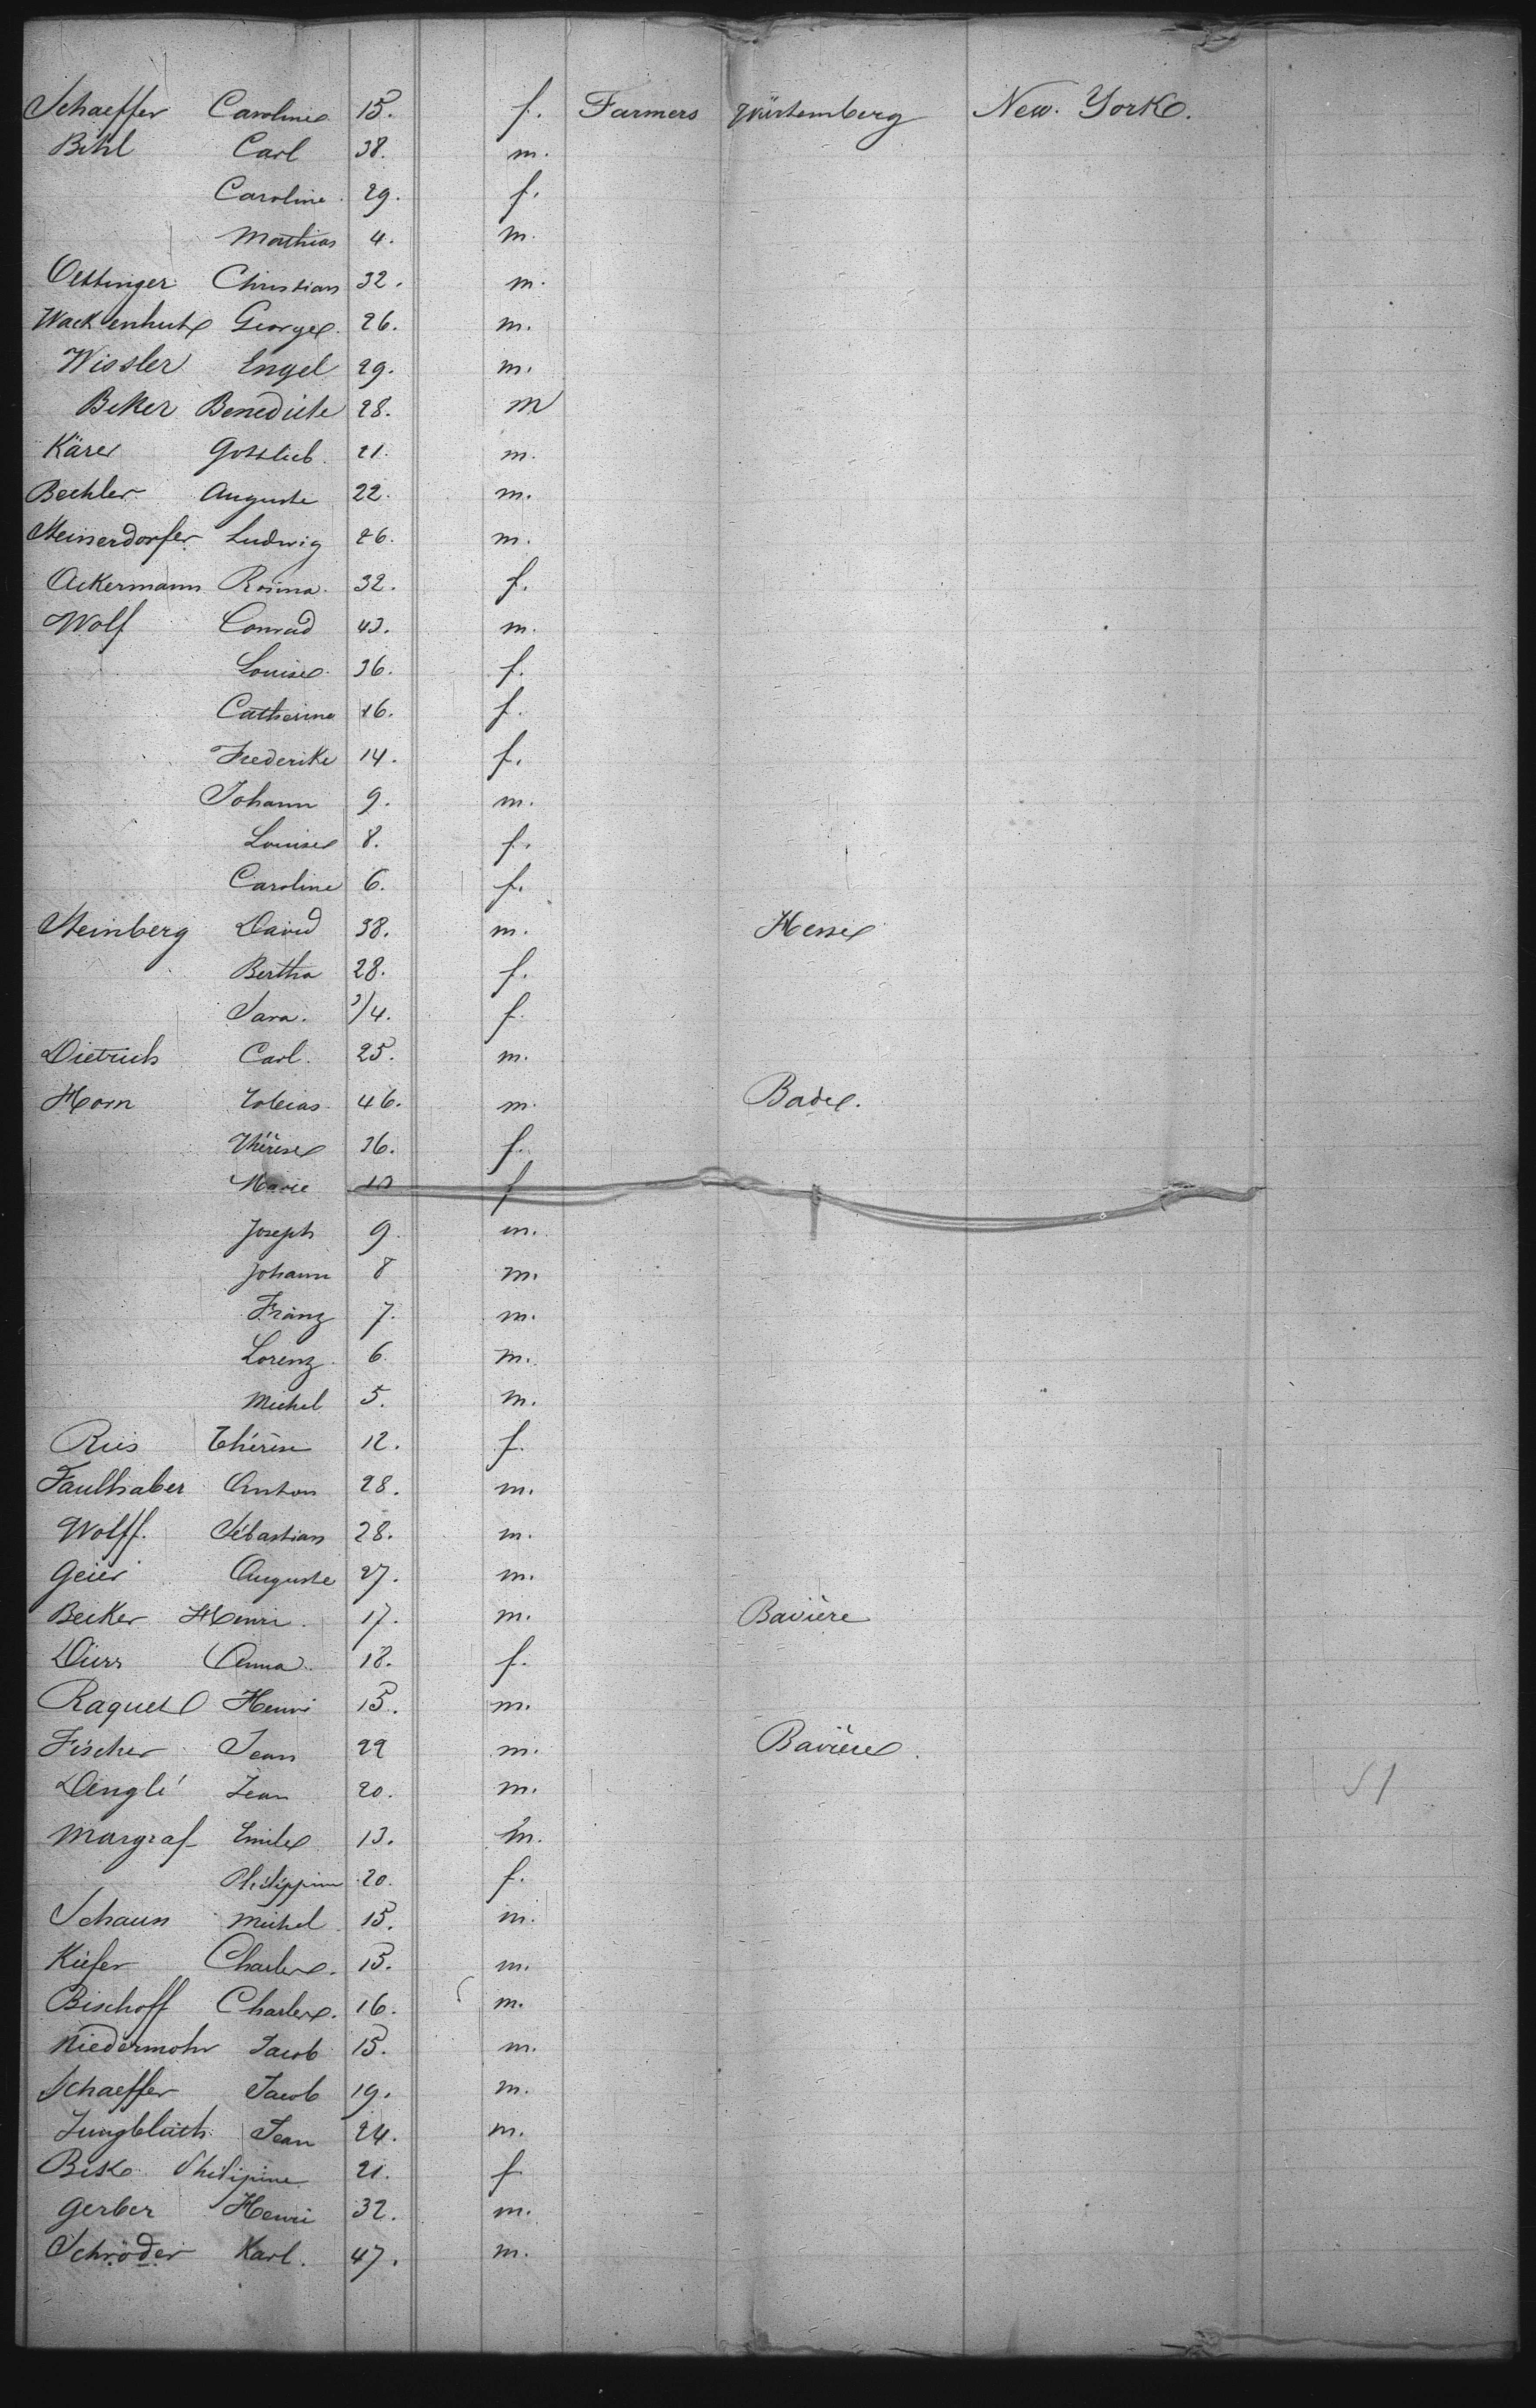 Schaeffer Caroline 15. f. Farmers Würtemberg New. York.
Bihl Carl 38. m.
Caroline 29. f.
Mathias 4. m.
Oettinger Christian 32. m.
Wackenhut George. 26. m.
Wissler Engel 29. m.
Beker Benedicte 28. m
Kärer Gottlieb 21. m.
Bechler Auguste 22. m.
Meinerdorfer Ludwig 26. m.
Ackermann Rosina. 32. f.
Wolf Conrad 43. m.
Louise 36. f.
Catherine 16. f.
Frederike 14. f.
Johann 9. m.
Louise 8. f.
Caroline 6. f.
Steinberg David 38. m. Hesse
Bertha 28. f.
Sara. 3/4. f.
Dietrich Carl. 25. m.
Horn Tobias 46. m. Bade.
Thérèse 36. f.
Marie 10 f
Joseph 9. m.
Johann 8 m.
Franz 7. m.
Lorenz 6. m.
Michel 5. m.
Ries Thérèse 12. f.
Faulhaber Anton 28. m.
Wolff. Sébastian 28. m.
Geier Auguste 27. m.
Becker Henri 17. m. Bavière
Dürr Anna 18. f.
Raquet Henri 15. m.
Fischer Jean 22 m. Bavière.
Denglé Jean 20. m.
Margraf Emile 13. m.
Philippine 20. f.
Schaun Michel 15. m.
Kiefer Charles. 15. m.
Bischoff Charles. 16. m.
Niedermohr Jacob 15. m.
Schaeffer Jacob 19. m.
Jungbluth Jean 24. m.
Philipine 21. f
Gerber Henri 32. m.
Schröder Karl. 47. m.